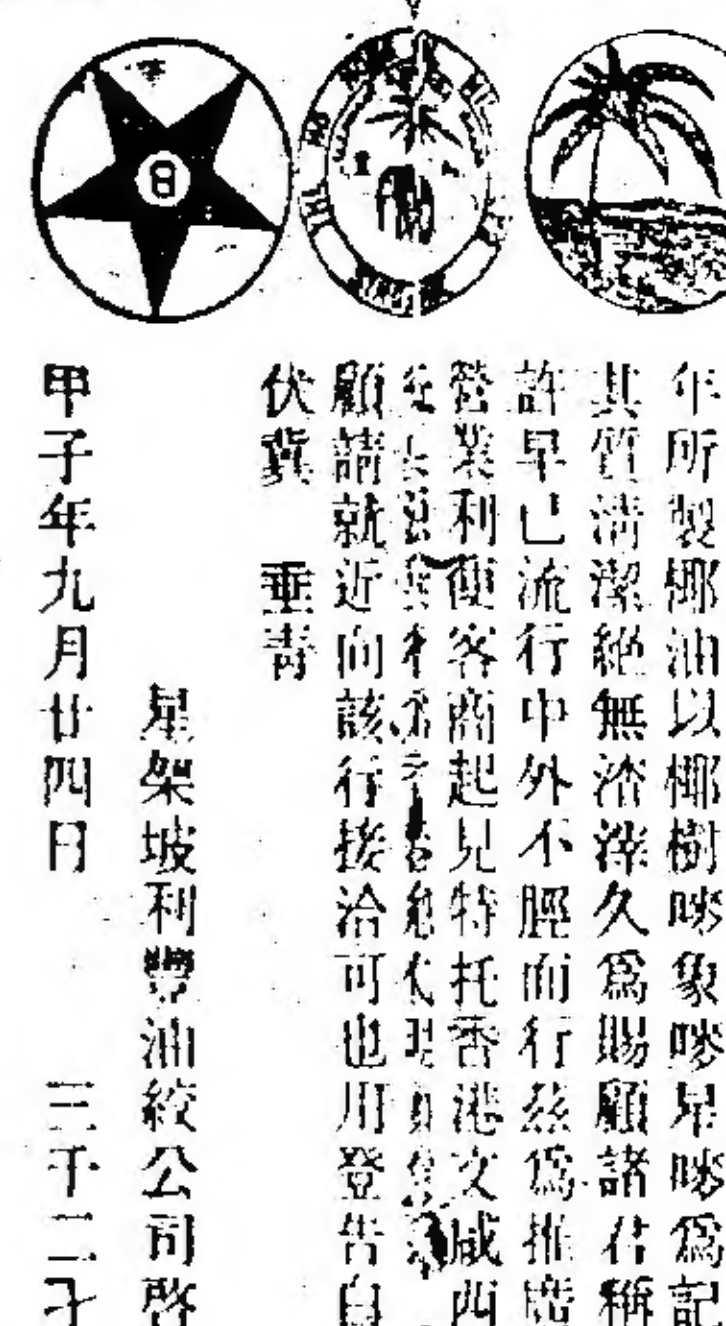 年所製椰油以椰樹嘜象嘜星嘜爲記
其質淸潔絕無渣滓久爲賜顧諸君稱
許早已流行中外不脛而行茲爲推廣
營業利便客商起見特托香港文咸西
顧請就近向該行接洽可也用登告白
伏冀 垂青
星架坡利豐油絞公司啓
甲子年九月廿四日 三千二
日